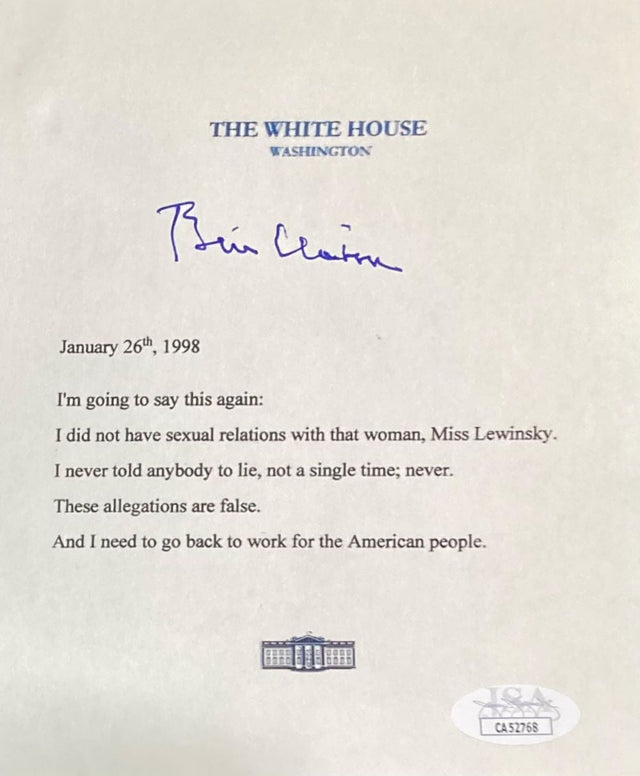 THE WHITE HOUSE
WASHINGTON
Bill Clinton
January 26th, 1998
I'm going to say this again:
I did not have sexual relations with that woman, Miss Lewinsky.
I never told anybody to lie, not a single time; never.
These allegations are false.
And I need to go back to work for the American people.
JSA
CA52768